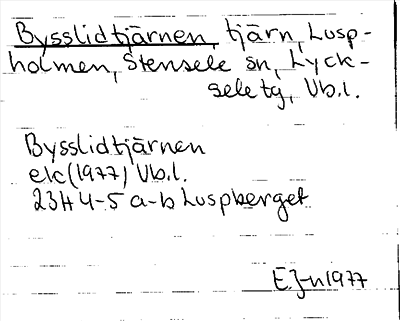 Bysslidtjärnen, tjärn, Lusp-
holmen, Stensele sn, Lyck-
sele tg, Vb.l.
Bysslidtjärnen
elc (1977) Vb.l.
23H 4-5 a-b Luspberget
EJ-n 1977